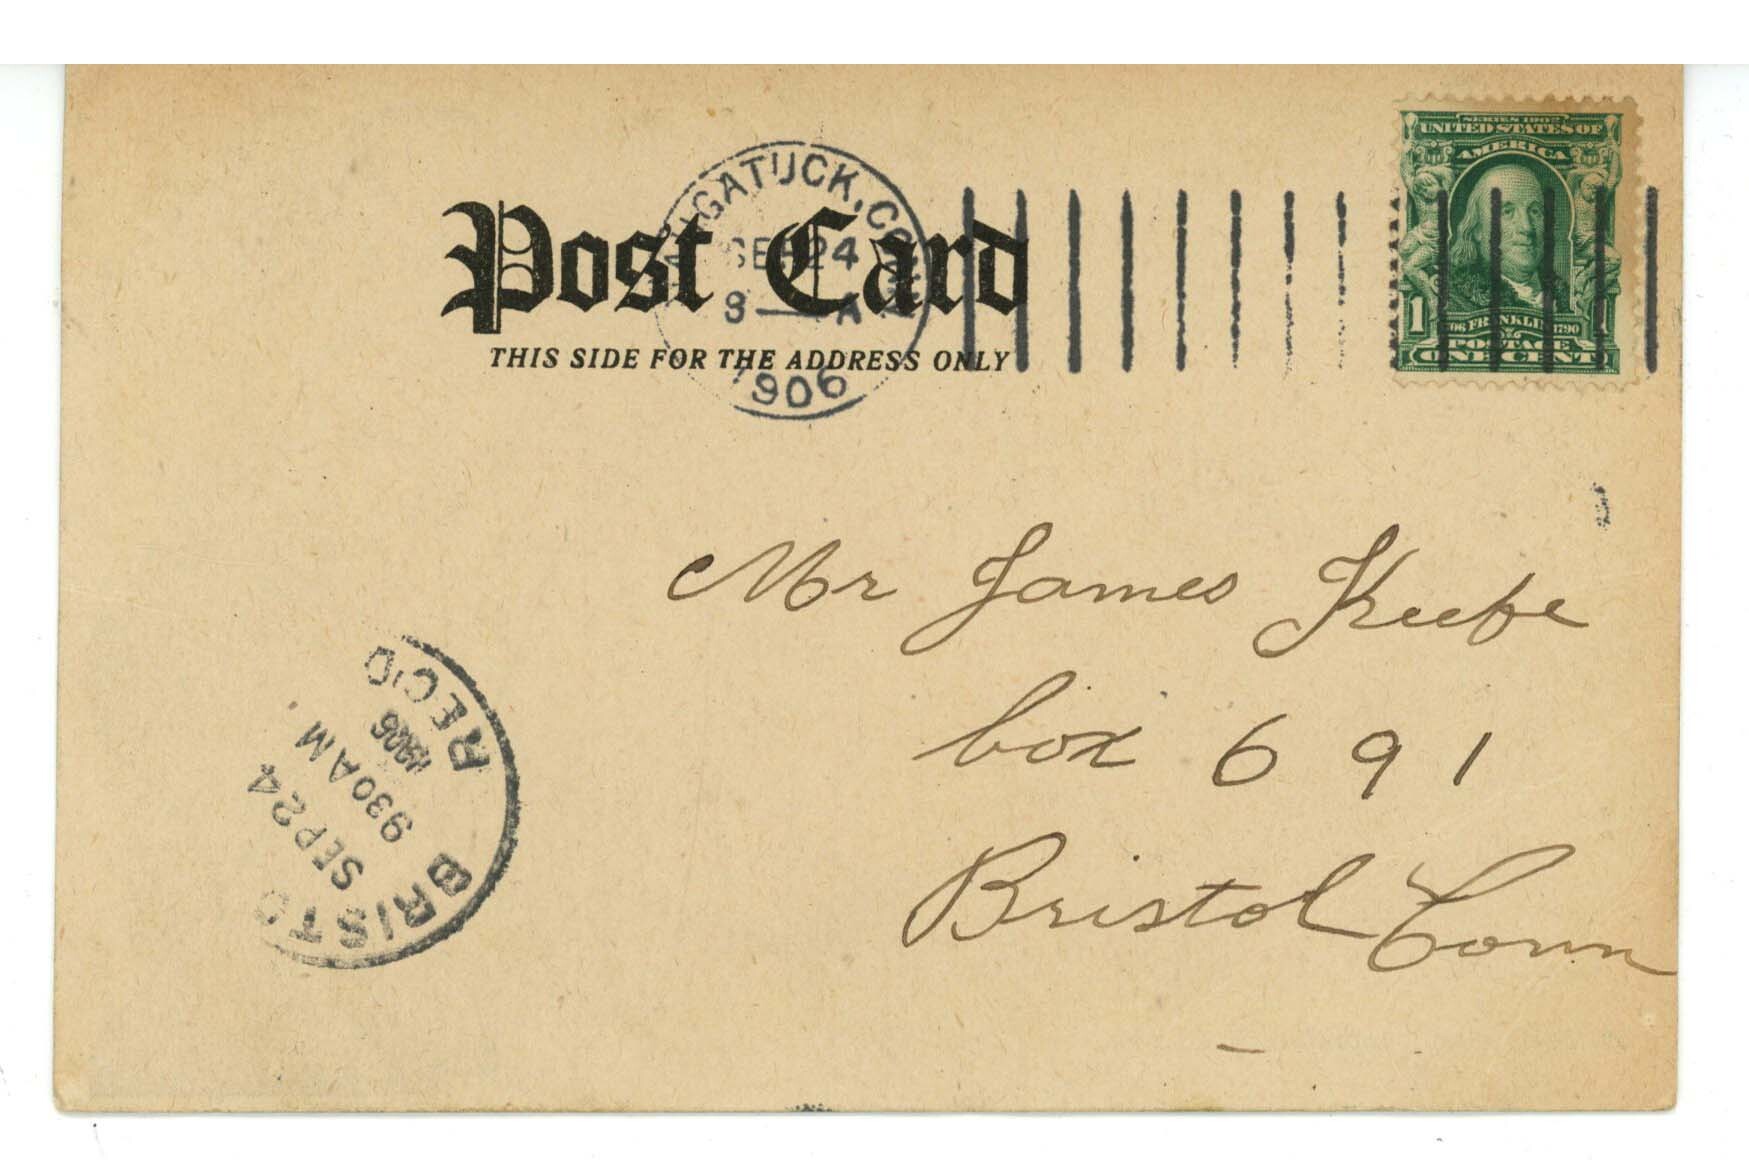 SERIES 1902
UNITED STATES OF
AMERICA
NAUGATUCK, CONN.
SEP 24
8 — A
1906
Post Card
THIS SIDE FOR THE ADDRESS ONLY
1
FRANKLIN 1790
POSTAGE
ONE CENT
Mr James Keefe
box 691
Bristol Conn
BRISTO
SEP 24
930 AM
1906
REC'D